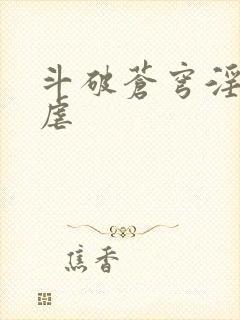 斗破苍穹淫
虐
焦香